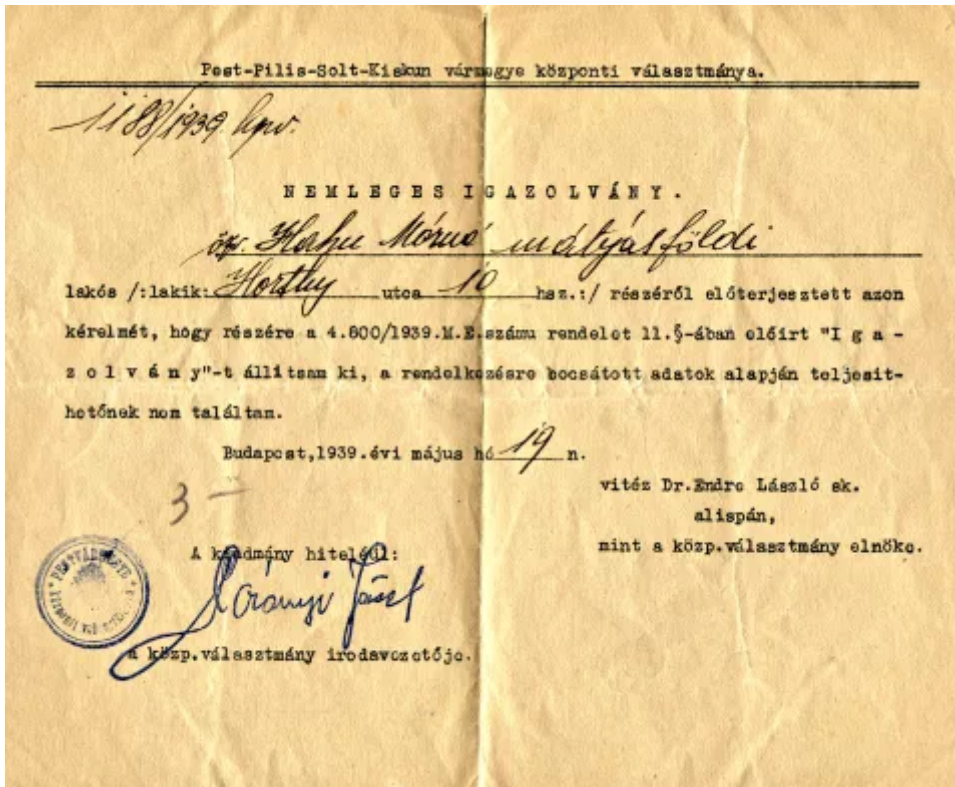 Pest-Pilis-Solt-Kiskun vármegye központi választmánya.
1188/1939. kpv.
NEMLEGES IGAZOLVÁNY.
özv. Hahn Mórné mátyásföldi
lakós /:lakik: Horthy utca 10 hsz.:/ részéről előterjesztett azon
kérelmét, hogy részére a 4.800/1939.M.E.számu rendelet 11.§-ában előirt "I g a -
z o l v á n y"-t állitsam ki, a rendelkezésre bocsátott adatok alapján teljesit-
hetőnek nem találtam.
Budapest,1939.évi május hó 19 n.
vitéz Dr.Endre László sk.
alispán,
mint a közp.választmány elnöke.
3 -
A kiadmány hiteléül:
József
a közp.választmány irodavezetője.